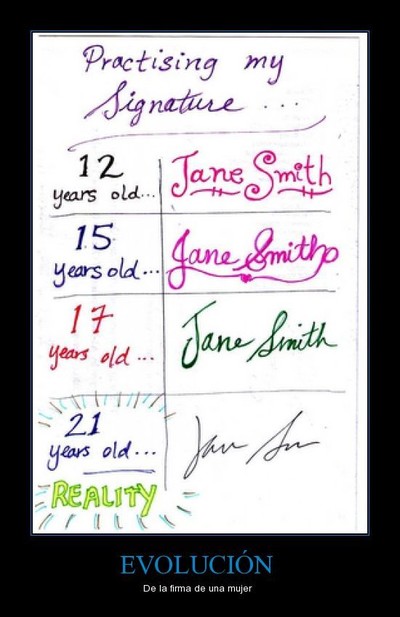 Practising my
Signature ...
12
years old...
Jane Smith
15
years old...
Jane Smith
17
years old ...
Jane Smith
21
years old...
REALITY
EVOLUCIÓN
De la firma de una mujer